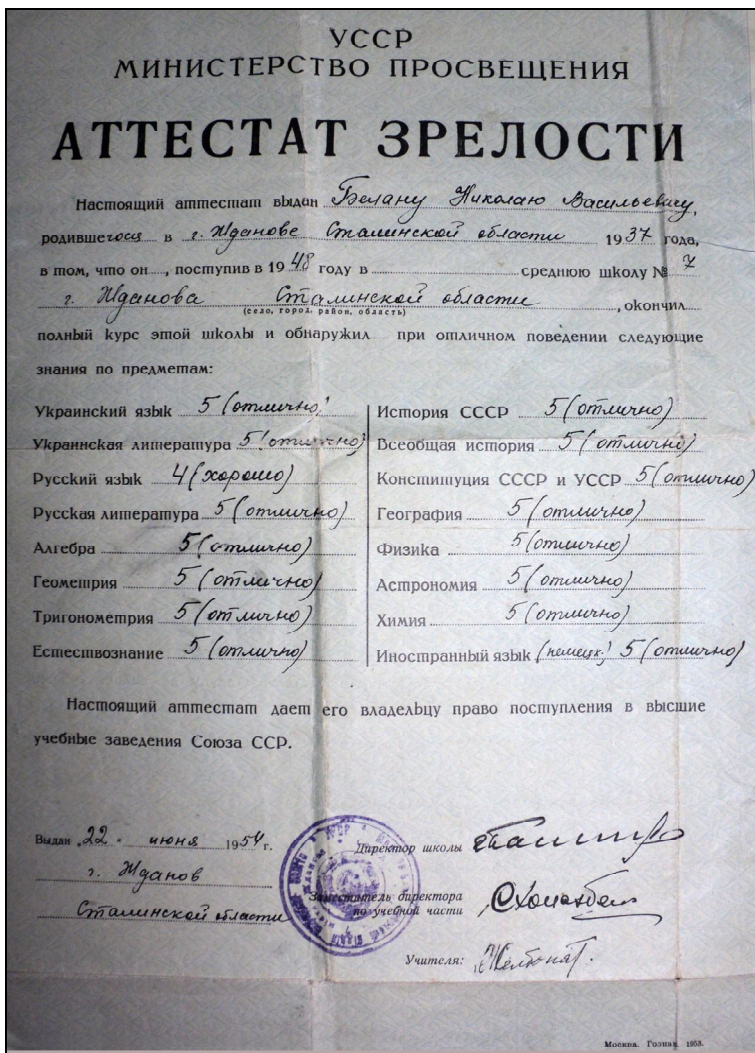 УССР
МИНИСТЕРСТВО ПРОСВЕЩЕНИЯ
АТТЕСТАТ ЗРЕЛОСТИ
Настоящий аттестат выдан Белану Николаю Васильевичу,
родившегося в г. Жданове Сталинской области 1937 года,
в том, что он, поступив в 1948 году в среднюю школу № 7
г. Жданова Сталинской области, окончил
(село, город, район, область)
полный курс этой школы и обнаружил при отличном поведении следующие
знания по предметам:
Украинский язык 5 (отлично)
Украинская литература 5 (отлично)
Русский язык 4 (хорошо)
Русская литература 5 (отлично)
Алгебра 5 (отлично)
Геометрия 5 (отлично)
Тригонометрия 5 (отлично)
Естествознание 5 (отлично)
История СССР 5 (отлично)
Всеобщая история 5 (отлично)
Конституция СССР и УССР 5 (отлично)
География 5 (отлично)
Физика 5 (отлично)
Астрономия 5 (отлично)
Химия 5 (отлично)
Иностранный язык (немецк.) 5 (отлично)
Настоящий аттестат дает его владельцу право поступления в высшие
учебные заведения Союза ССР.
Выдан 22 июня 1954 г.
г. Жданов
Сталинской области
Директор школы
Заместитель директора
по учебной части
Учителя:
Москва. Гознак. 1953.